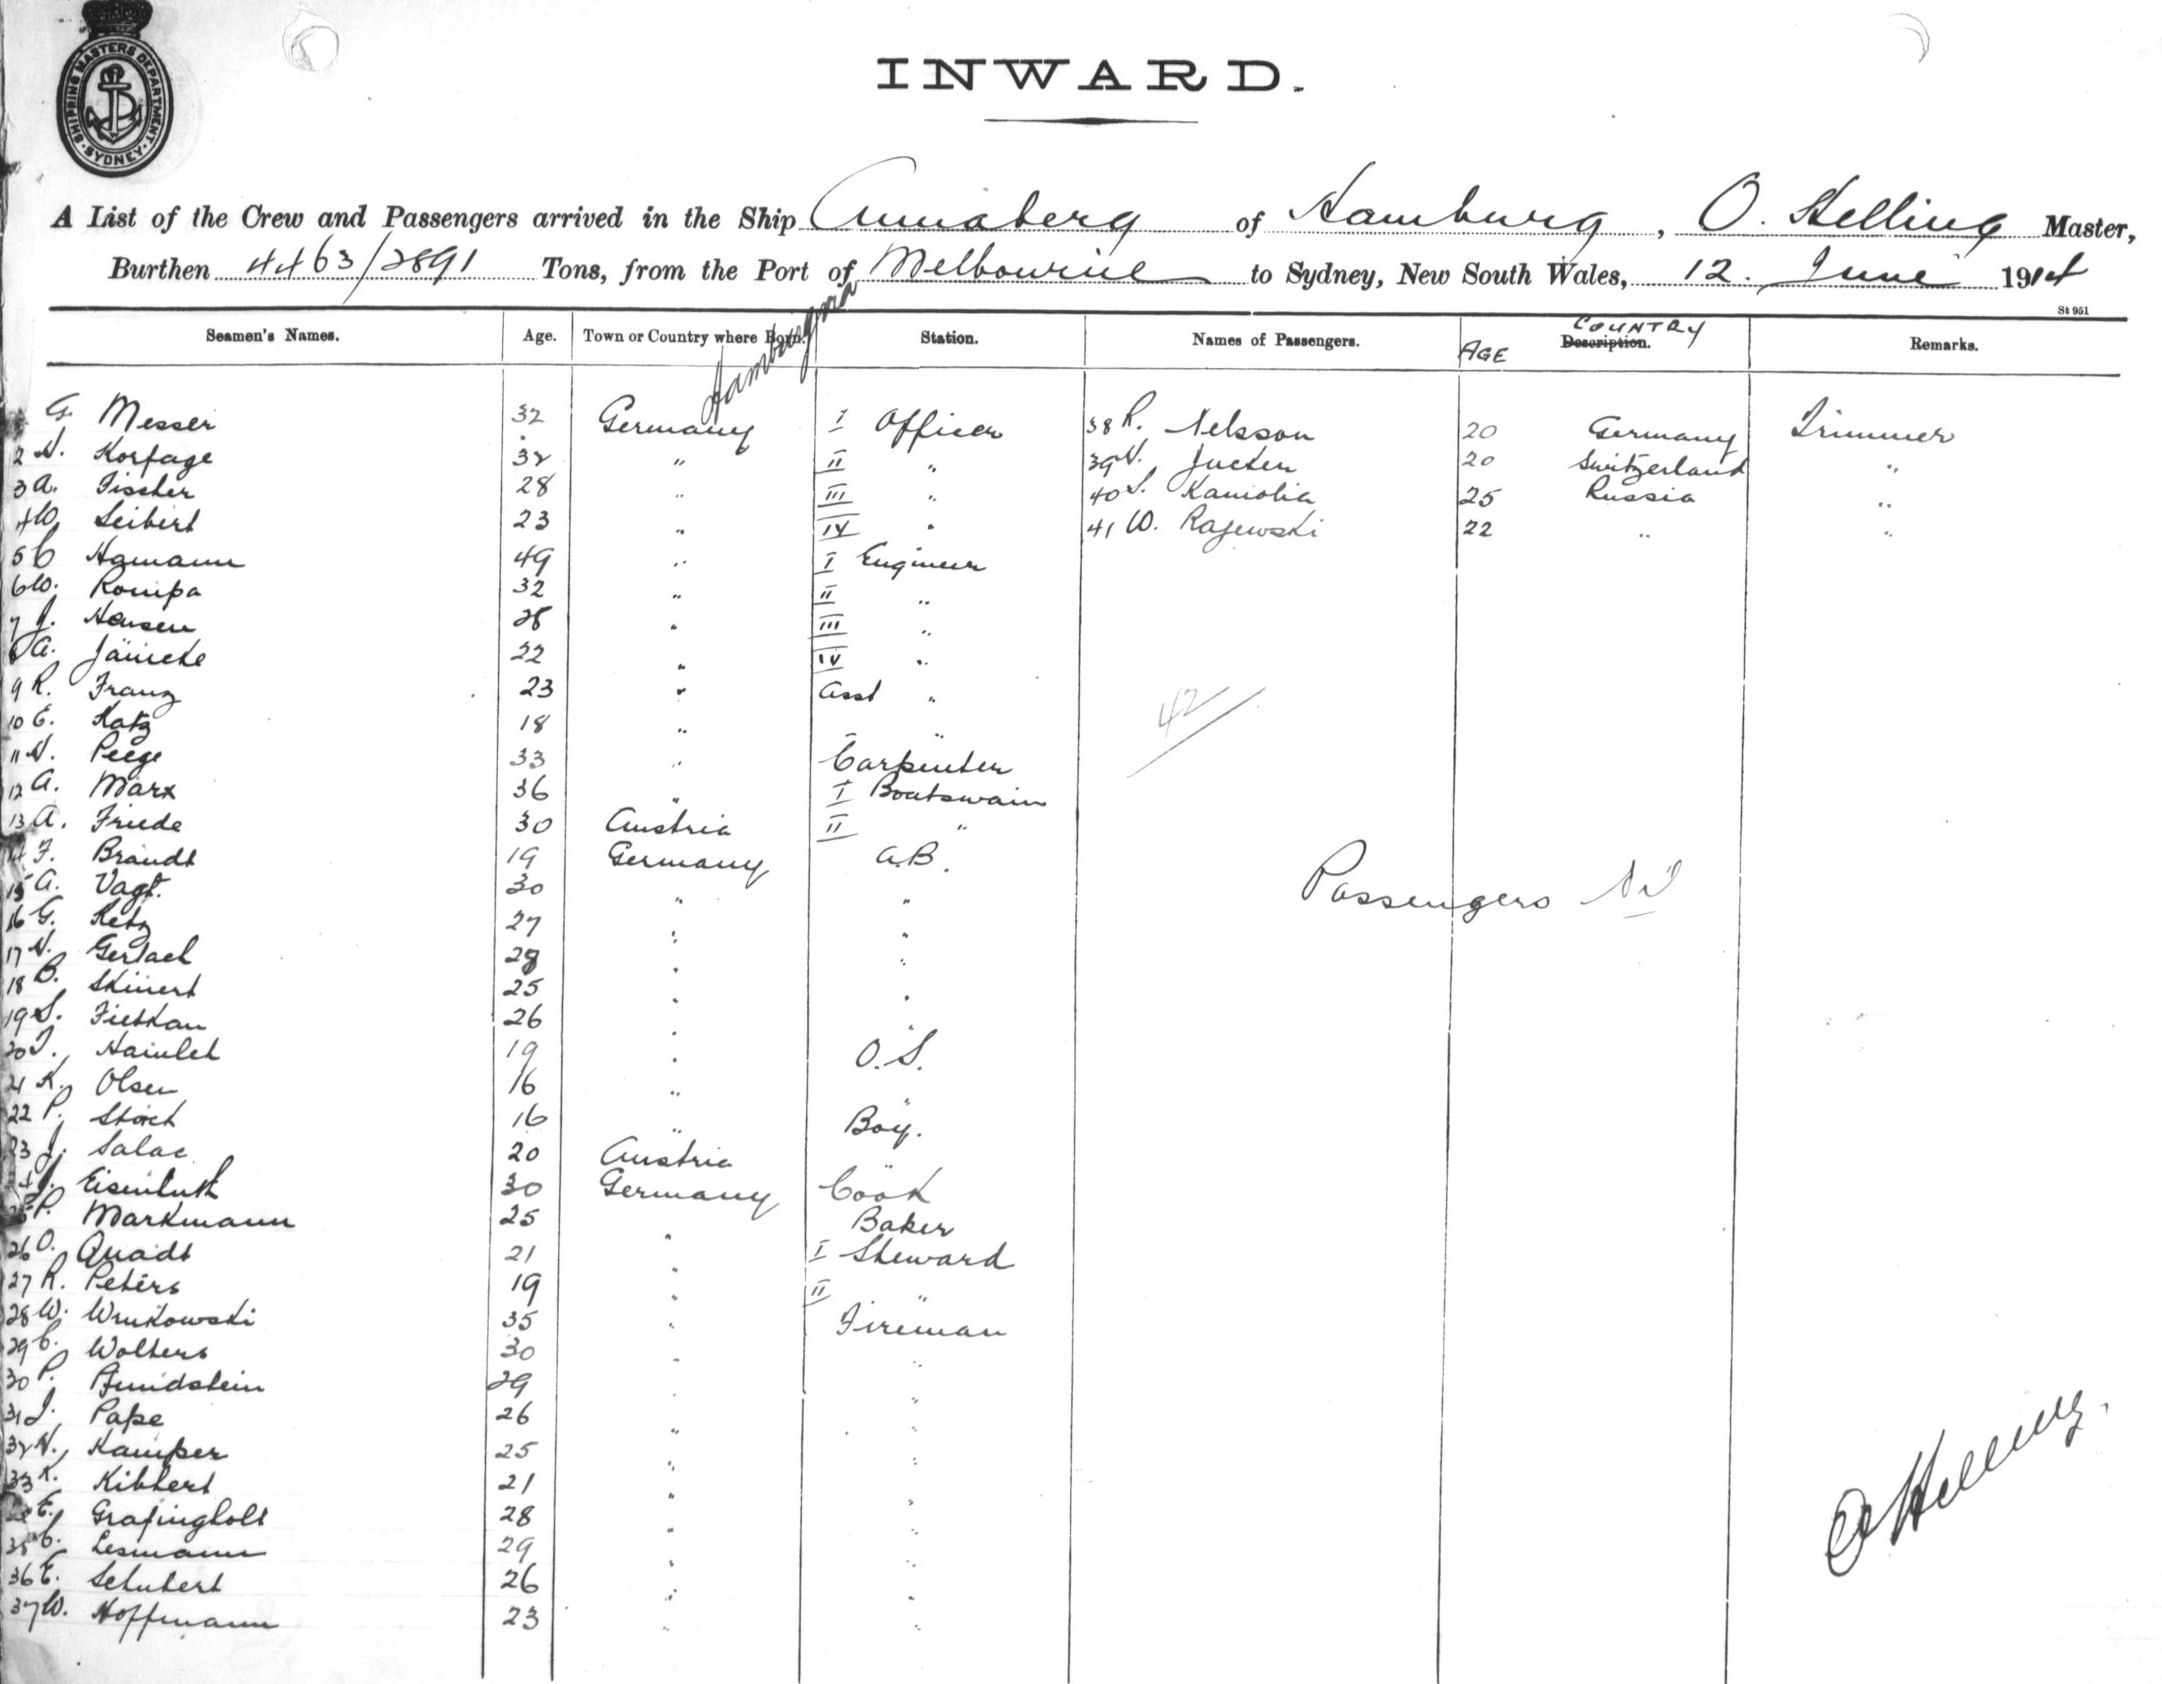 SHIPPING MASTERS DEPARTMENT
SYDNEY
INWARD.
A List of the Crew and Passengers arrived in the Ship Annaberg of Hamburg, O. Helling Master,
Burthen 4463/2891 Tons, from the Port of Melbourne to Sydney, New South Wales, 12. June 1914
St 951
Seamen's Names. Age. Town or Country where Born. Station. Names of Passengers. AGE COUNTRY Description. Remarks.
G. Messer 32 Germany I Officer 38 R. Nelsson 20 Germany Trimmer
2 H. Korfage 32 " II " 39 H. Jucker 20 Switzerland "
3 A. Fischer 28 " III " 40 S. 25 Russia "
4 W. Seibert 23 " IV " 41 W. Rajewski 22 " "
5 C Hamann 49 " I Engineer
6 W. 32 " II "
7 J. Hansen 28 " III "
A. Jänicke 22 " IV "
9 R. Franz 23 " Asst "
10 E. Katz 18 " "
11 H. Peege 33 " Carpenter
12 A. Marx 36 " I Boatswain
13 A. Friede 30 Austria II "
14 F. Brandt 19 Germany A.B.
15 A. Vagt. 30 " "
16 G. Retz 27 " "
17 H. Gerlach 28 " "
18 B. 25 " "
19 S. 26 " "
20 J. Hamlet 19 " O.S.
21 K. Olsen 16 " "
22 P. Storch 16 " Boy.
23 J. Salac 20 Austria "
24 J. 30 Germany Cook
25 P. Markmann 25 " Baker
26 O. Quadt 21 " I Steward
27 R. Peters 19 " II "
28 W. 35 " Fireman
29 C. Wolters 30 " "
30 P. Pfundstein 29 " "
31 J. Pape 26 " "
32 H. Kamper 25 " "
33 K. Kibbert 21 " "
E. Grafingholt 28 " "
35 C. Lesmann 29 " "
36 E. Schubert 26 " "
37 W. Hoffmann 23 " "
42
Passengers Nil
O Helling.